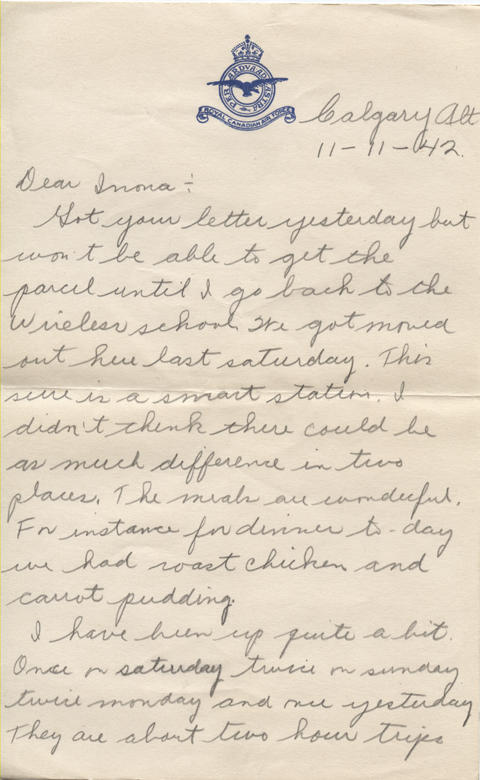 PER ARDUA AD ASTRA
ROYAL CANADIAN AIR FORCE
Calgary Alt
11-11-42.
Dear Inona :
Got your letter yesterday but
won't be able to get the
parcel until I go back to the
Wireless school. We got moved
out here last saturday. This
sure is a smart station. I
didn't think there could be
as much difference in two
places. The meals are wonderful.
For instance for dinner to-day
we had roast chicken and
carrot pudding.
I have been up quite a bit.
Once on saturday twice on sunday
twice monday and once yesterday
They are about two hour trips